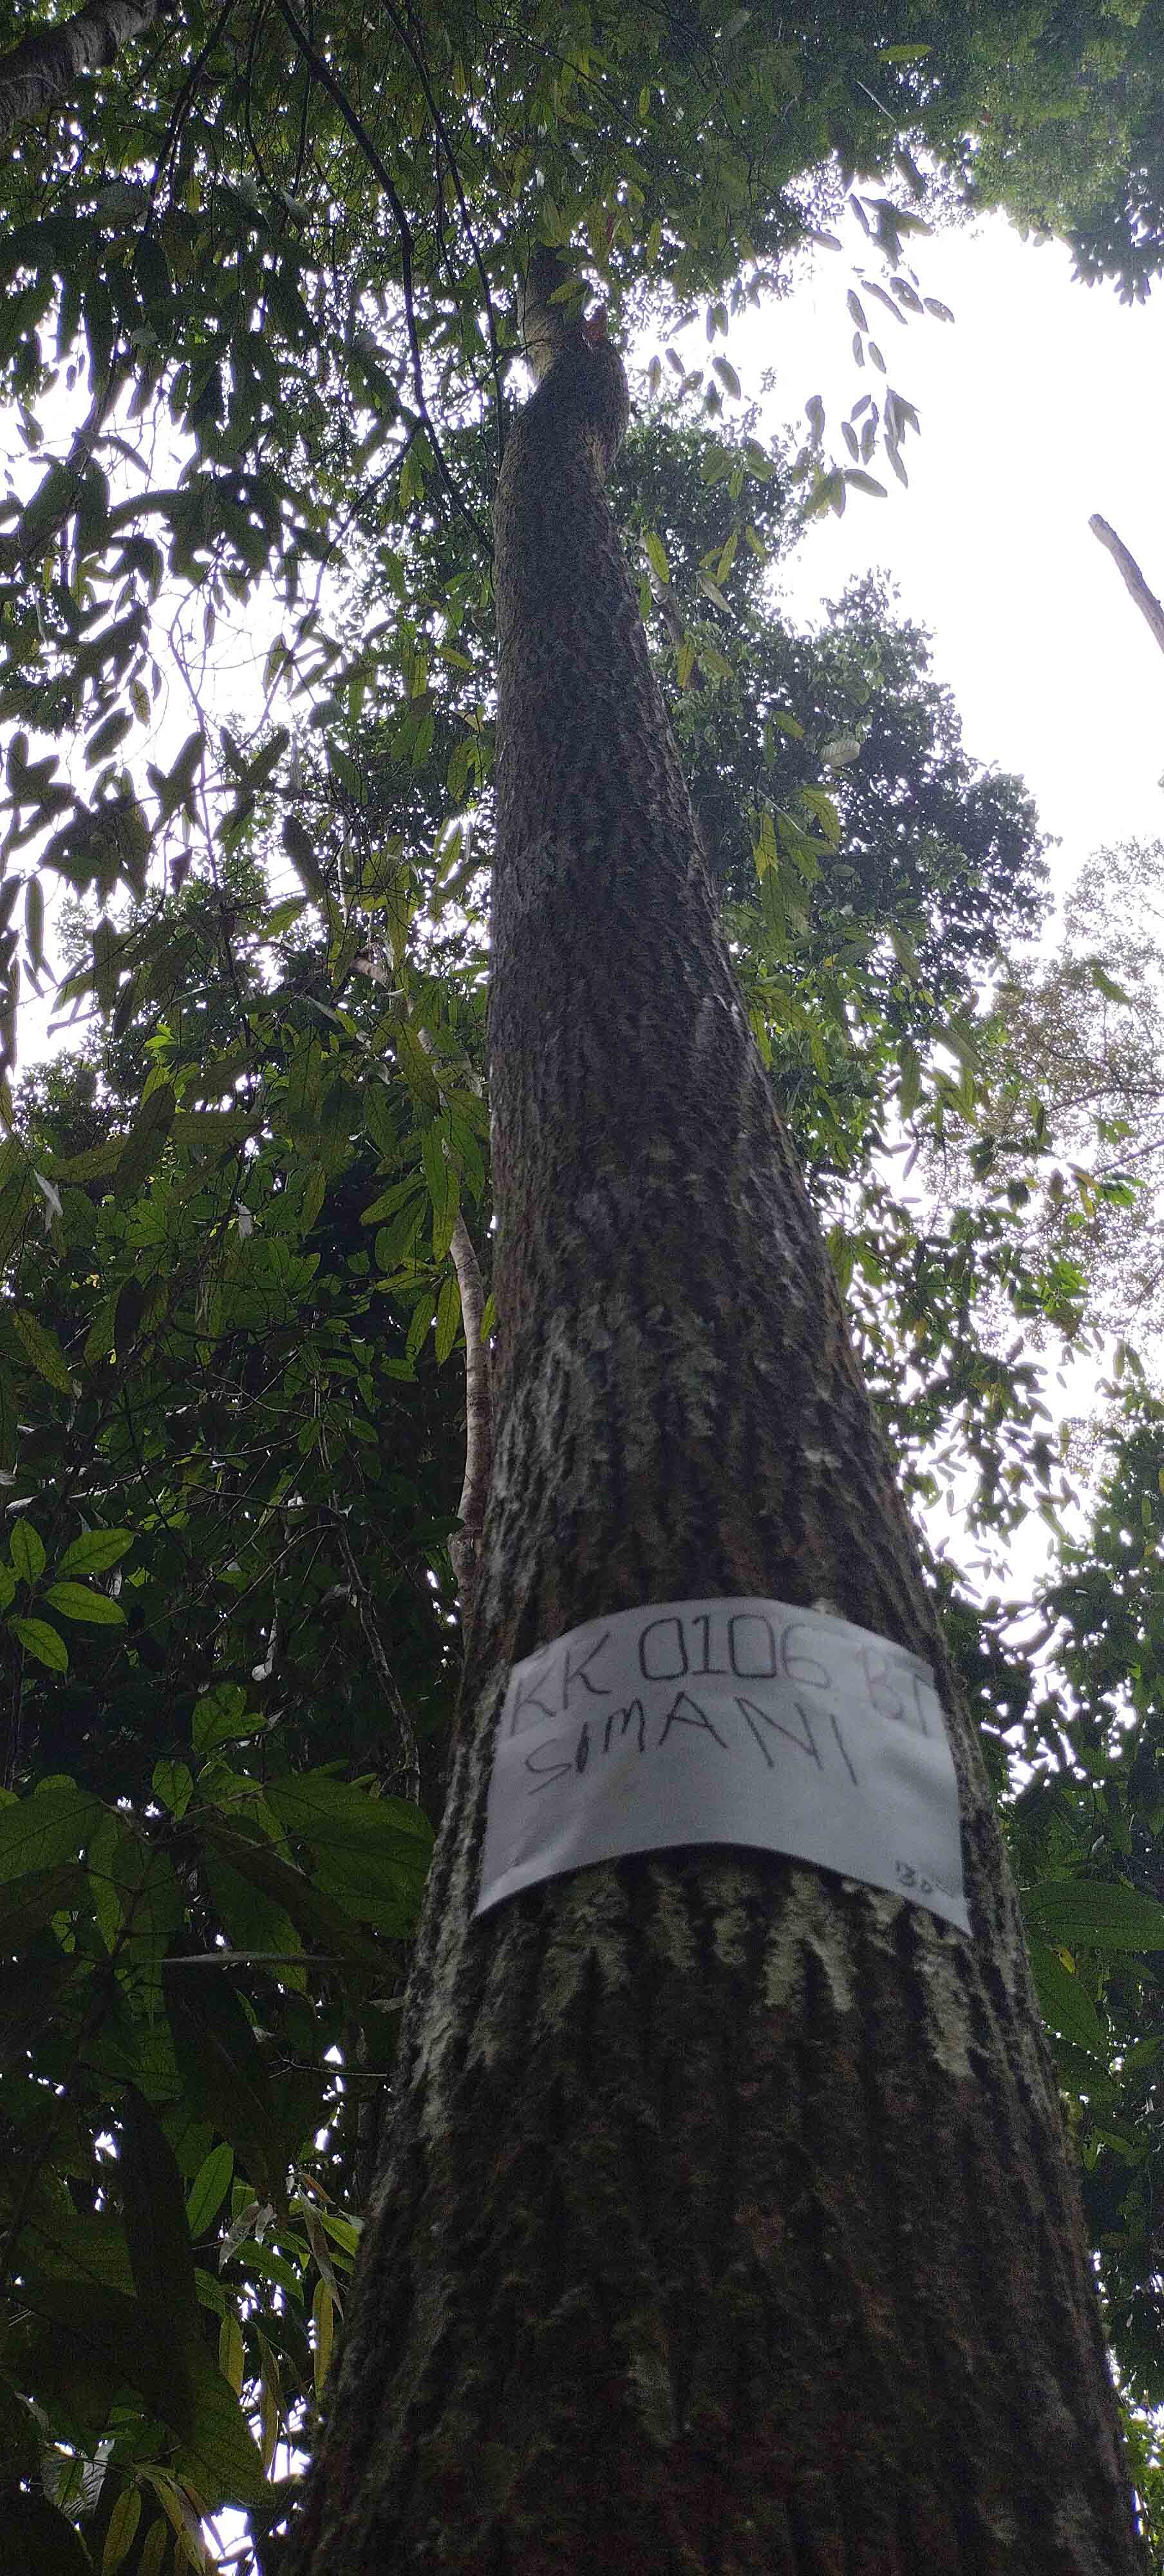 KK 0106 BT
SIMANI
130